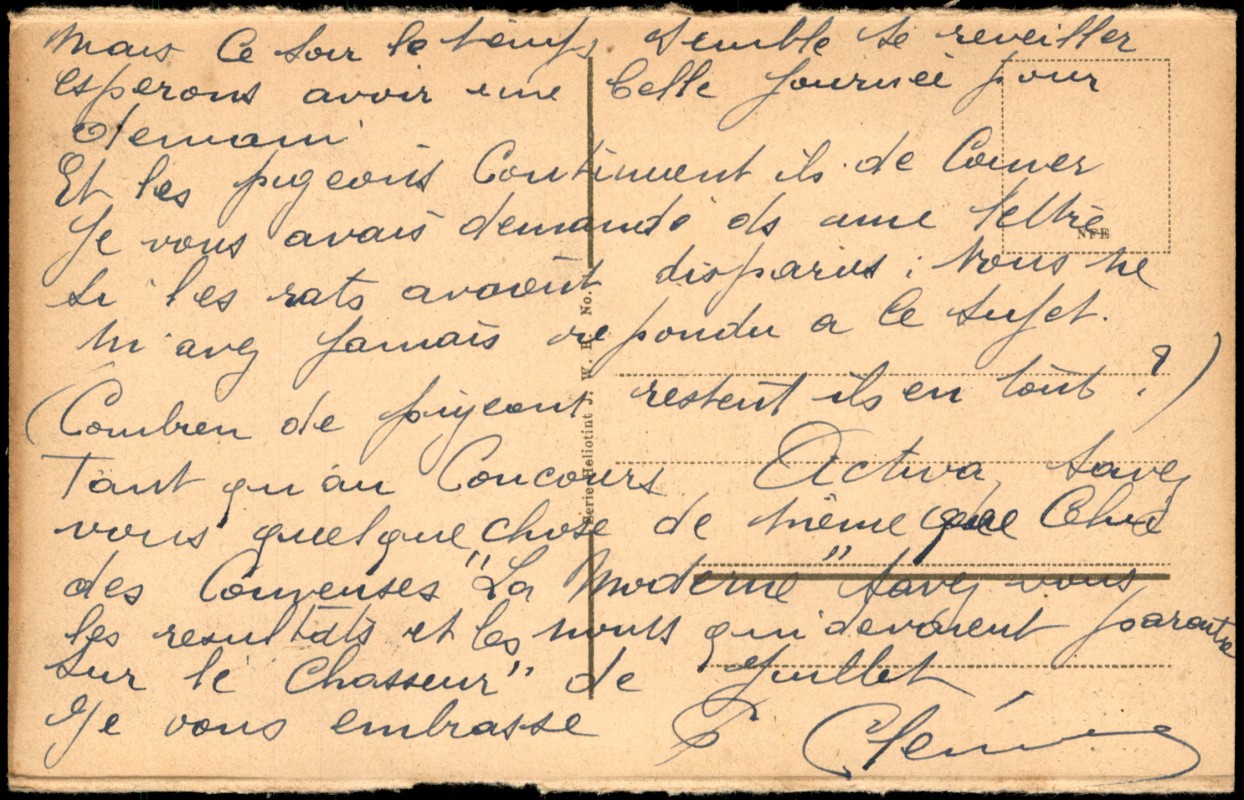 Mais ce soir le temps semble se reveiller
esperons avoir une belle journée pour
demain
Et les pigeons continuent ils de couver
Je vous avais demandé ds une lettre
si les rats avaient disparus ; vous ne
m'avez jamais repondu a ce sujet.
(Combien de pigeons restent ils en tout ?)
Tant qu'au Concours Activa, savez
vous quelque chose de même que celui
des Couveuses "La Moderne" savez vous
les resultats et les noms qui devaient paraitre
sur le Chasseur" de Juillet
Je vous embrasse P Clem
NPE
Serie Heliotint J. W. B. No.